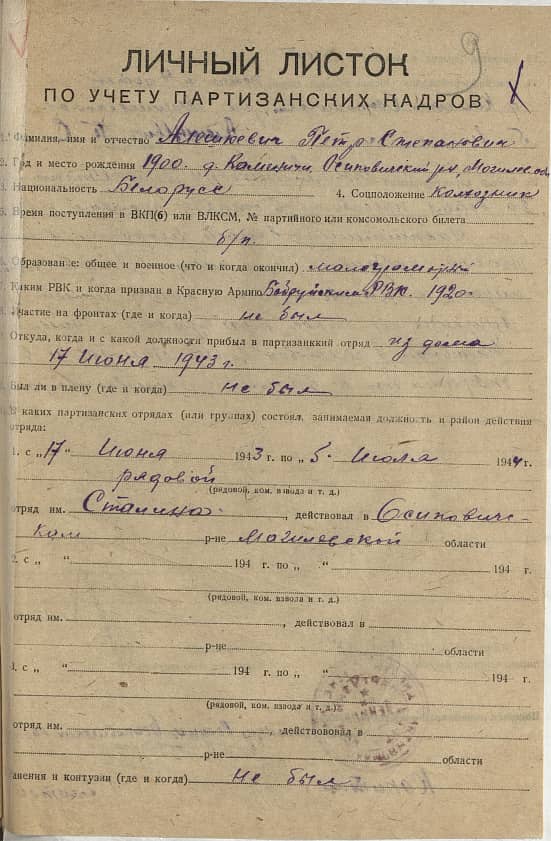 9
ЛИЧНЫЙ ЛИСТОК
ПО УЧЕТУ ПАРТИЗАНСКИХ КАДРОВ
1. Фамилия, имя и отчество Петр Степанович
2. Год и место рождения 1900. д. Осиповичский р-н, Могилев. обл
3. Национальность Белорусс 4. Соцположение Колхозник
5. Время поступления в ВКП(б) или ВЛКСМ, № партийного или комсомольского билета
б/п.
6. Образование: общее и военное (что и когда окончил) малограмотный
7. Каким РВК и когда призван в Красную Армию Бобруйским РВК. 1920.
Участие на фронтах (где и когда) не был
Откуда, когда и с какой должности прибыл в партизанский отряд из дома
17 Июня 1943 г.
Был ли в плену (где и когда) не был
В каких партизанских отрядах (или группах) состоял, занимаемая должность и район действия
отряда:
1. с „17" Июня 1943 г. по „5." Июля 1944 г.
рядовой
(рядовой, ком. взвода и т. д.)
отряд им. Сталина, действовал в Осипович-
ком р-не Магилевской области
2. с „ “ 194 г. по „ “ 194 г.
(рядовой, ком. взвода и т. д.)
отряд им. , действовал в
р-не области
с „ “ 194 г. по „ “ 194 г.
(рядовой, ком. взвода и т. д.)
отряд им. , действовал в
р-не области
ранения и контузии (где и когда) не был